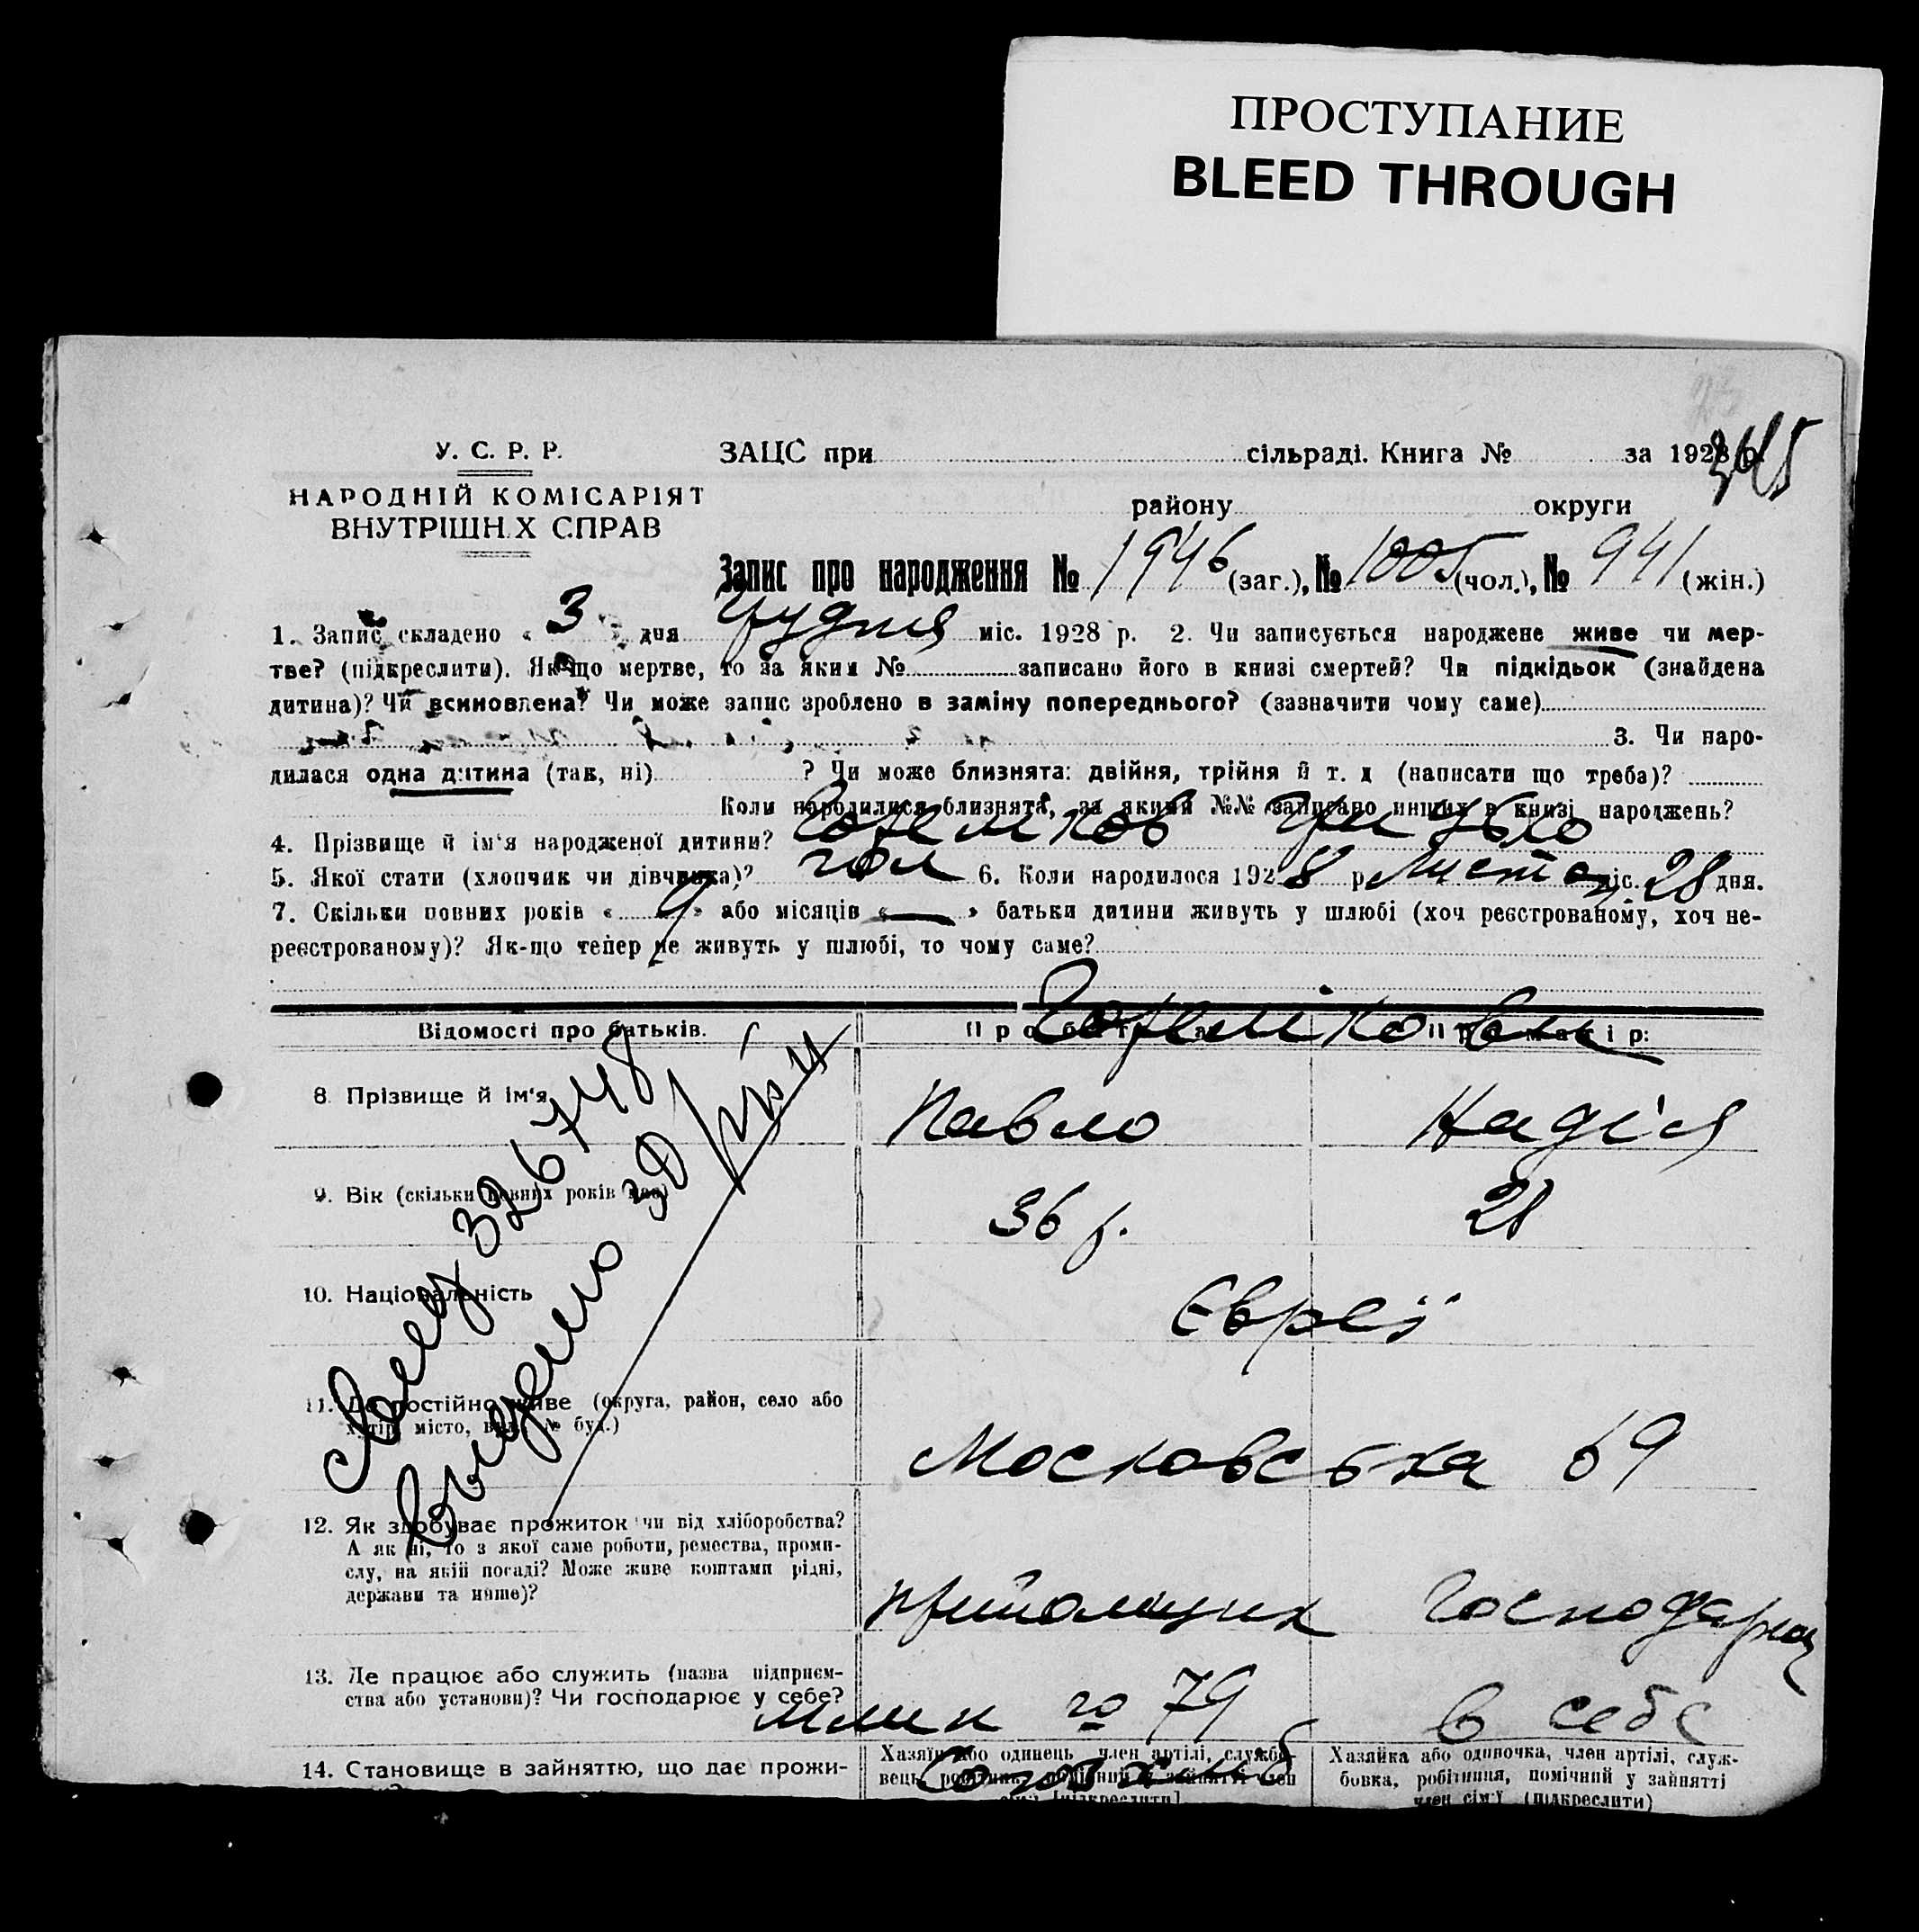 ПРОСТУПАНИЕ
BLEED THROUGH
У. С. Р. Р.
НАРОДНІЙ КОМІСАРІЯТ
ВНУТРІШН.Х СПРАВ
ЗАЦС при сільраді. Книга № за 1928 р.
району округи
Запис про народження № 1946 (заг.), № 1005 (чол.), № 941 (жін.)
1. Запис складено « 3 » дня грудня міс. 1928 р. 2. Чи записується народжене живе чи мер-
тве? (підкреслити). Як-що мертве, то за яким № записано його в книзі смертей? Чи підкідьок (знайдена
дитина)? Чи всиновлена? Чи може запис зроблено в заміну попереднього? (зазначити чому саме)
3. Чи наро-
дилася одна дитина (так, ні) ? Чи може близнята: двійня, трійня й т. д (написати що треба)?
Коли народилися близнята, за якими №№ записано инших в книзі народжень?
4. Прізвище й ім'я народженої дитини?
5. Якої стати (хлопчик чи дівчинка)? чол 6. Коли народилося 1928 р. Листоп міс. 28 дня.
7. Скільки повних років « 9 » або місяців « — » батьки дитини живуть у шлюбі (хоч реєстрованому, хоч не-
реєстрованому)? Як-що тепер не живуть у шлюбі, то чому саме?
Відомості про батьків. Про батька: Про матір:
8. Прізвище й ім'я Павло Надія
9. Вік (скільки повних років має) 36 р. 28
10. Національність Євреї
11. Де постійно живе (округа, район, село або
хутір, місто, вул. № буд.) Московська 69
12. Як здобуває прожиток чи від хліборобства?
А як ні, то з якої саме роботи, ремества, проми-
слу, на якій посаді? Може живе коштами рідні,
держави та инше)? прийомщик господарка
13. Де працює або служить (назва підприєм-
ства або установи)? Чи господарює у себе? млин № 79 в себе
14. Становище в зайняттю, що дає прожи-
Хазяїн або одинець член артілі, службо-
вець, робітник, помічний у зайнятті член
сім'ї [підкреслити]
Хазяйка або одиночка, член артілі, служ-
бовка, робітниця, помічний у зайнятті
член сім'ї (підкреслити)